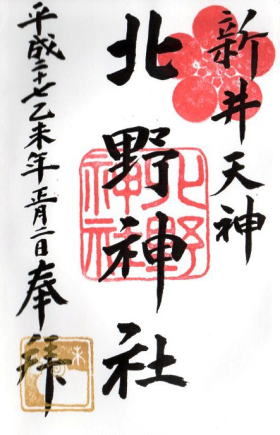 新井天神
北野神社
北野神社
平成二十七乙未年正月二日奉拜
未